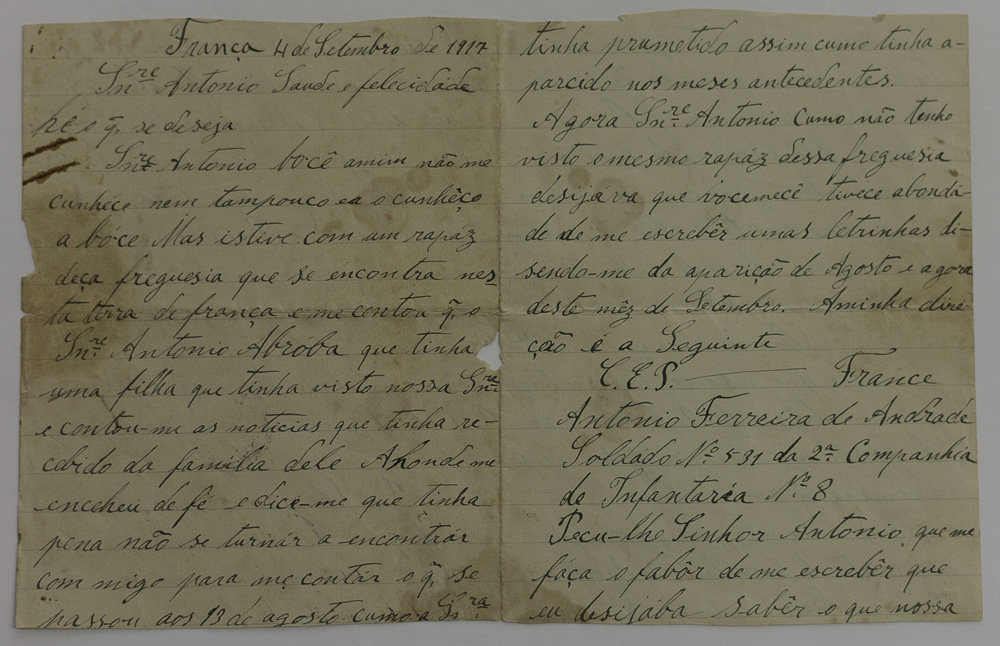 França 4 de Setembro de 1917
Snr.e Antonio Saude e felecidade
hé o q̃. se deseja
Snr.e Antonio bocê amim não me
cunhêce nem tampouco eu o cunhêço
a bóce Mas istive com um rapáz
deça freguesia que se encontra nes
ta terra de frança e me contou q̃. o
Snr.e Antonio Abroba que tinha
uma filha que tinha visto nossa Snr.a
e contou-me as noticias que tinha re-
cebido da familia dele Ahonde me
encheu de fé e dice-me que tinha
pena não se turnár a encontrár
com migo para me contár o q̃. se
passou aos 13 de agosto cumo a Sr.ra
tinha prumetido assim cumo tinha a-
parcido nos meses antecedentes.
Agora Snr.e Antonio Cumo não tenho
visto o mesmo rapáz dessa freguesia
desijáva que vocemecê tivece abondi-
de de me escrebêr umas letrinhas di-
sendo-me da aparição de Agosto e agora
deste mêz de Setembro. Aminha dire-
ção é a Seguinte
C.E.P. — France
Antonio Ferreira de Andrade
Soldado Nº 531 da 2ª Companhia
de Infantaria Nº 8
Pecu-lhe Sinhor Antonio que me
fáça o fabôr de me escrebêr que
eu desijába sabêr o que nossa